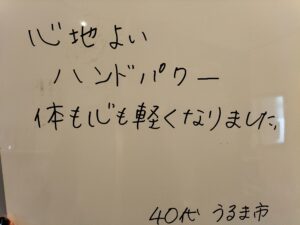 心地よい
ハンドパワー
体も心も軽くなりました。
40代 うるま市